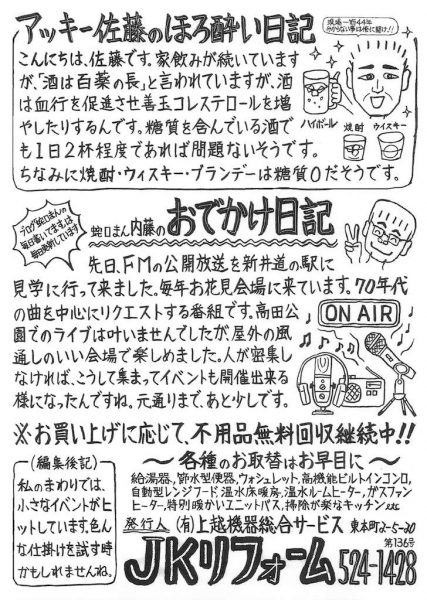 アッキー佐藤のほろ酔い日記
現場一筋44年
分からない事は俺に聞け!!
こんにちは、佐藤です。家飲みが続いています
が、「酒は百薬の長」と言われていますが、酒
は血行を促進させ善玉コレステロールを増
やしたりするんです。糖質を含んでいる酒で
も1日2杯程度であれば問題ないそうです。
ちなみに焼酎・ウィスキー・ブランデーは糖質0だそうです。
ハイボール
焼酎
ウイスキー
ブログ蛇口まんの
毎日書いてますは、
毎日更新しています
蛇口まん内藤のおでかけ日記
先日、FMの公開放送を新井道の駅に
見学に行って来ました。毎年お花見会場に来ています。70年代
の曲を中心にリクエストする番組です。高田公
園でのライブは叶いませんでしたが、屋外の風
通しのいい会場で楽しめました。人が密集し
なければ、こうして集まってイベントも開催出来る
様になったんですね。元通りまで、あと少しです。
ON AIR
※お買い上げに応じて、不用品無料回収継続中!!
(編集後記)
私のまわりでは、
小さなイベントがヒ
ットしています。色ん
な仕掛けを試す時
かもしれませんね。
〜各種のお取替はお早目に〜
給湯器、節水型便器、ウォシュレット、高機能ビルトインコンロ、
自動型レンジフード、温水床暖房、温水ルームヒーター、ガスファン
ヒーター、特別暖かいユニットバス、掃除が楽なキッチンetc
発行人 (有)上越機器総合サービス 東本町2-5-30
第136号
JKリフォーム 524-1428